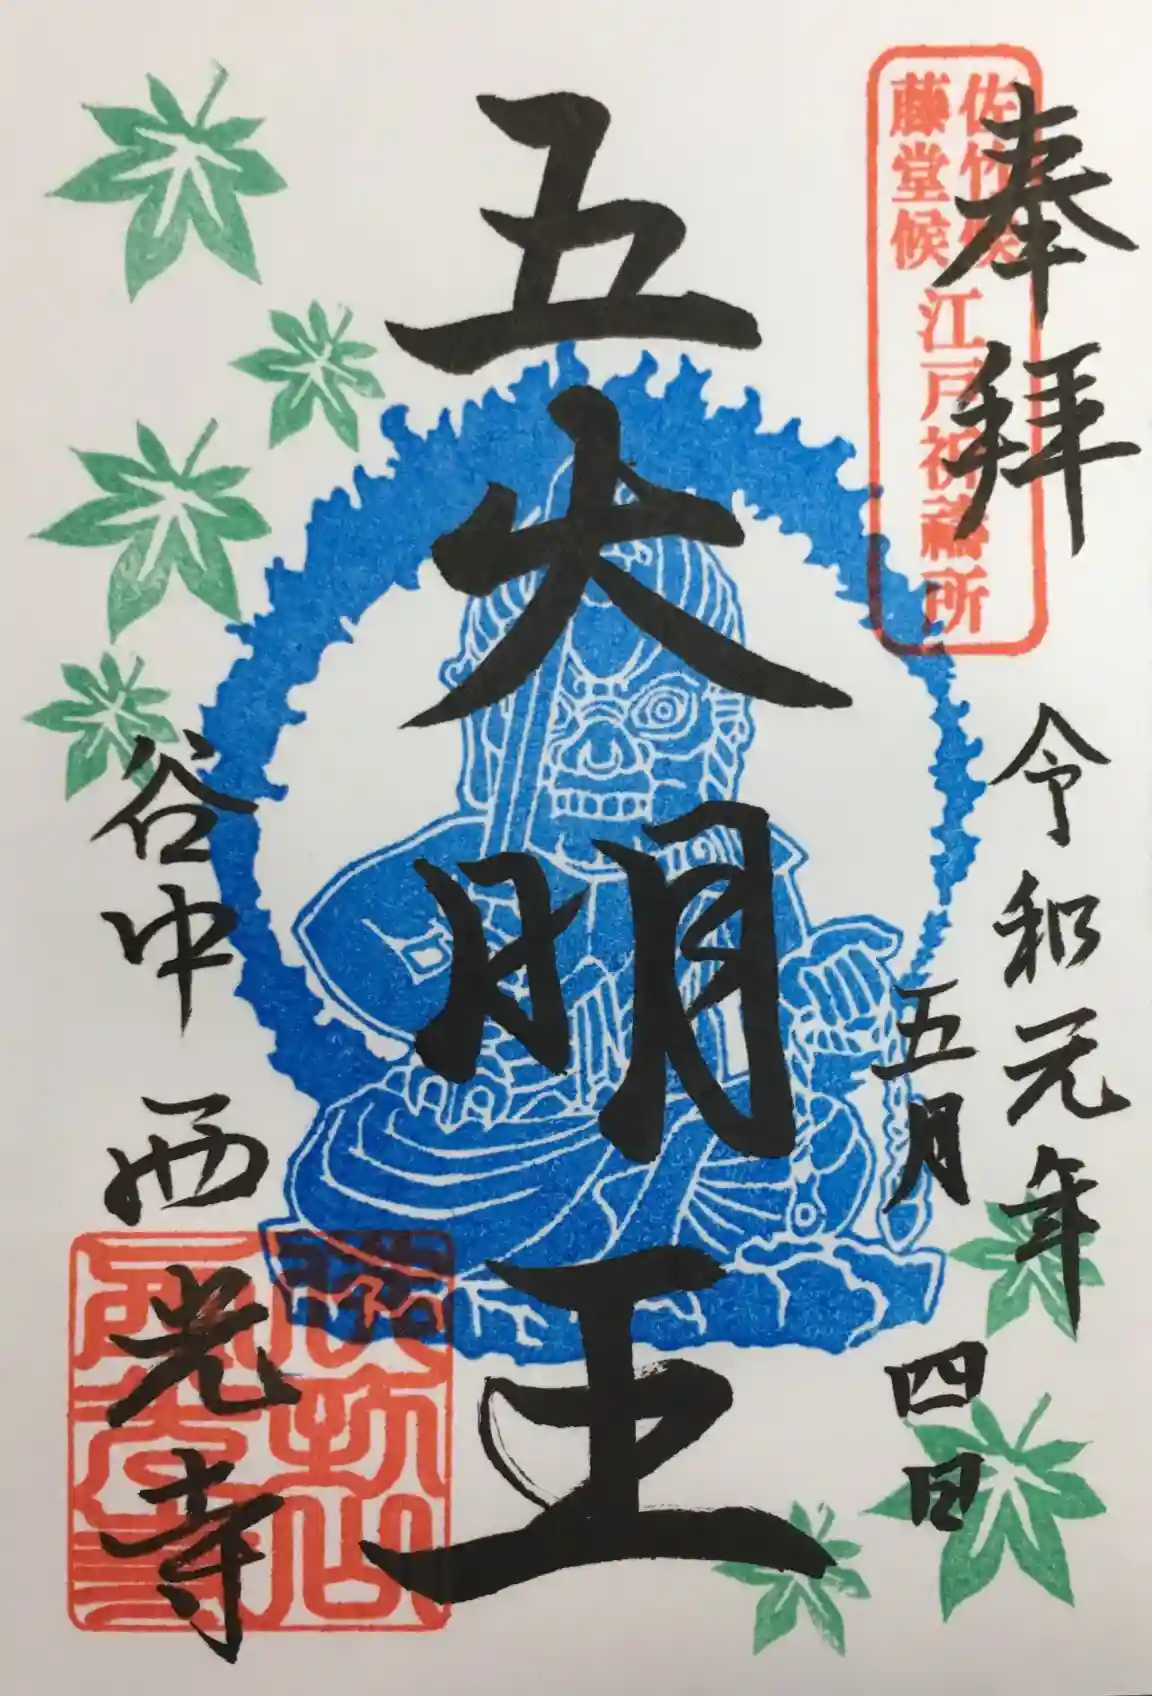 奉拝
佐竹候
藤堂候
江戸祈禱所
令和元年
五月
四日
五大明王
谷中
西光寺